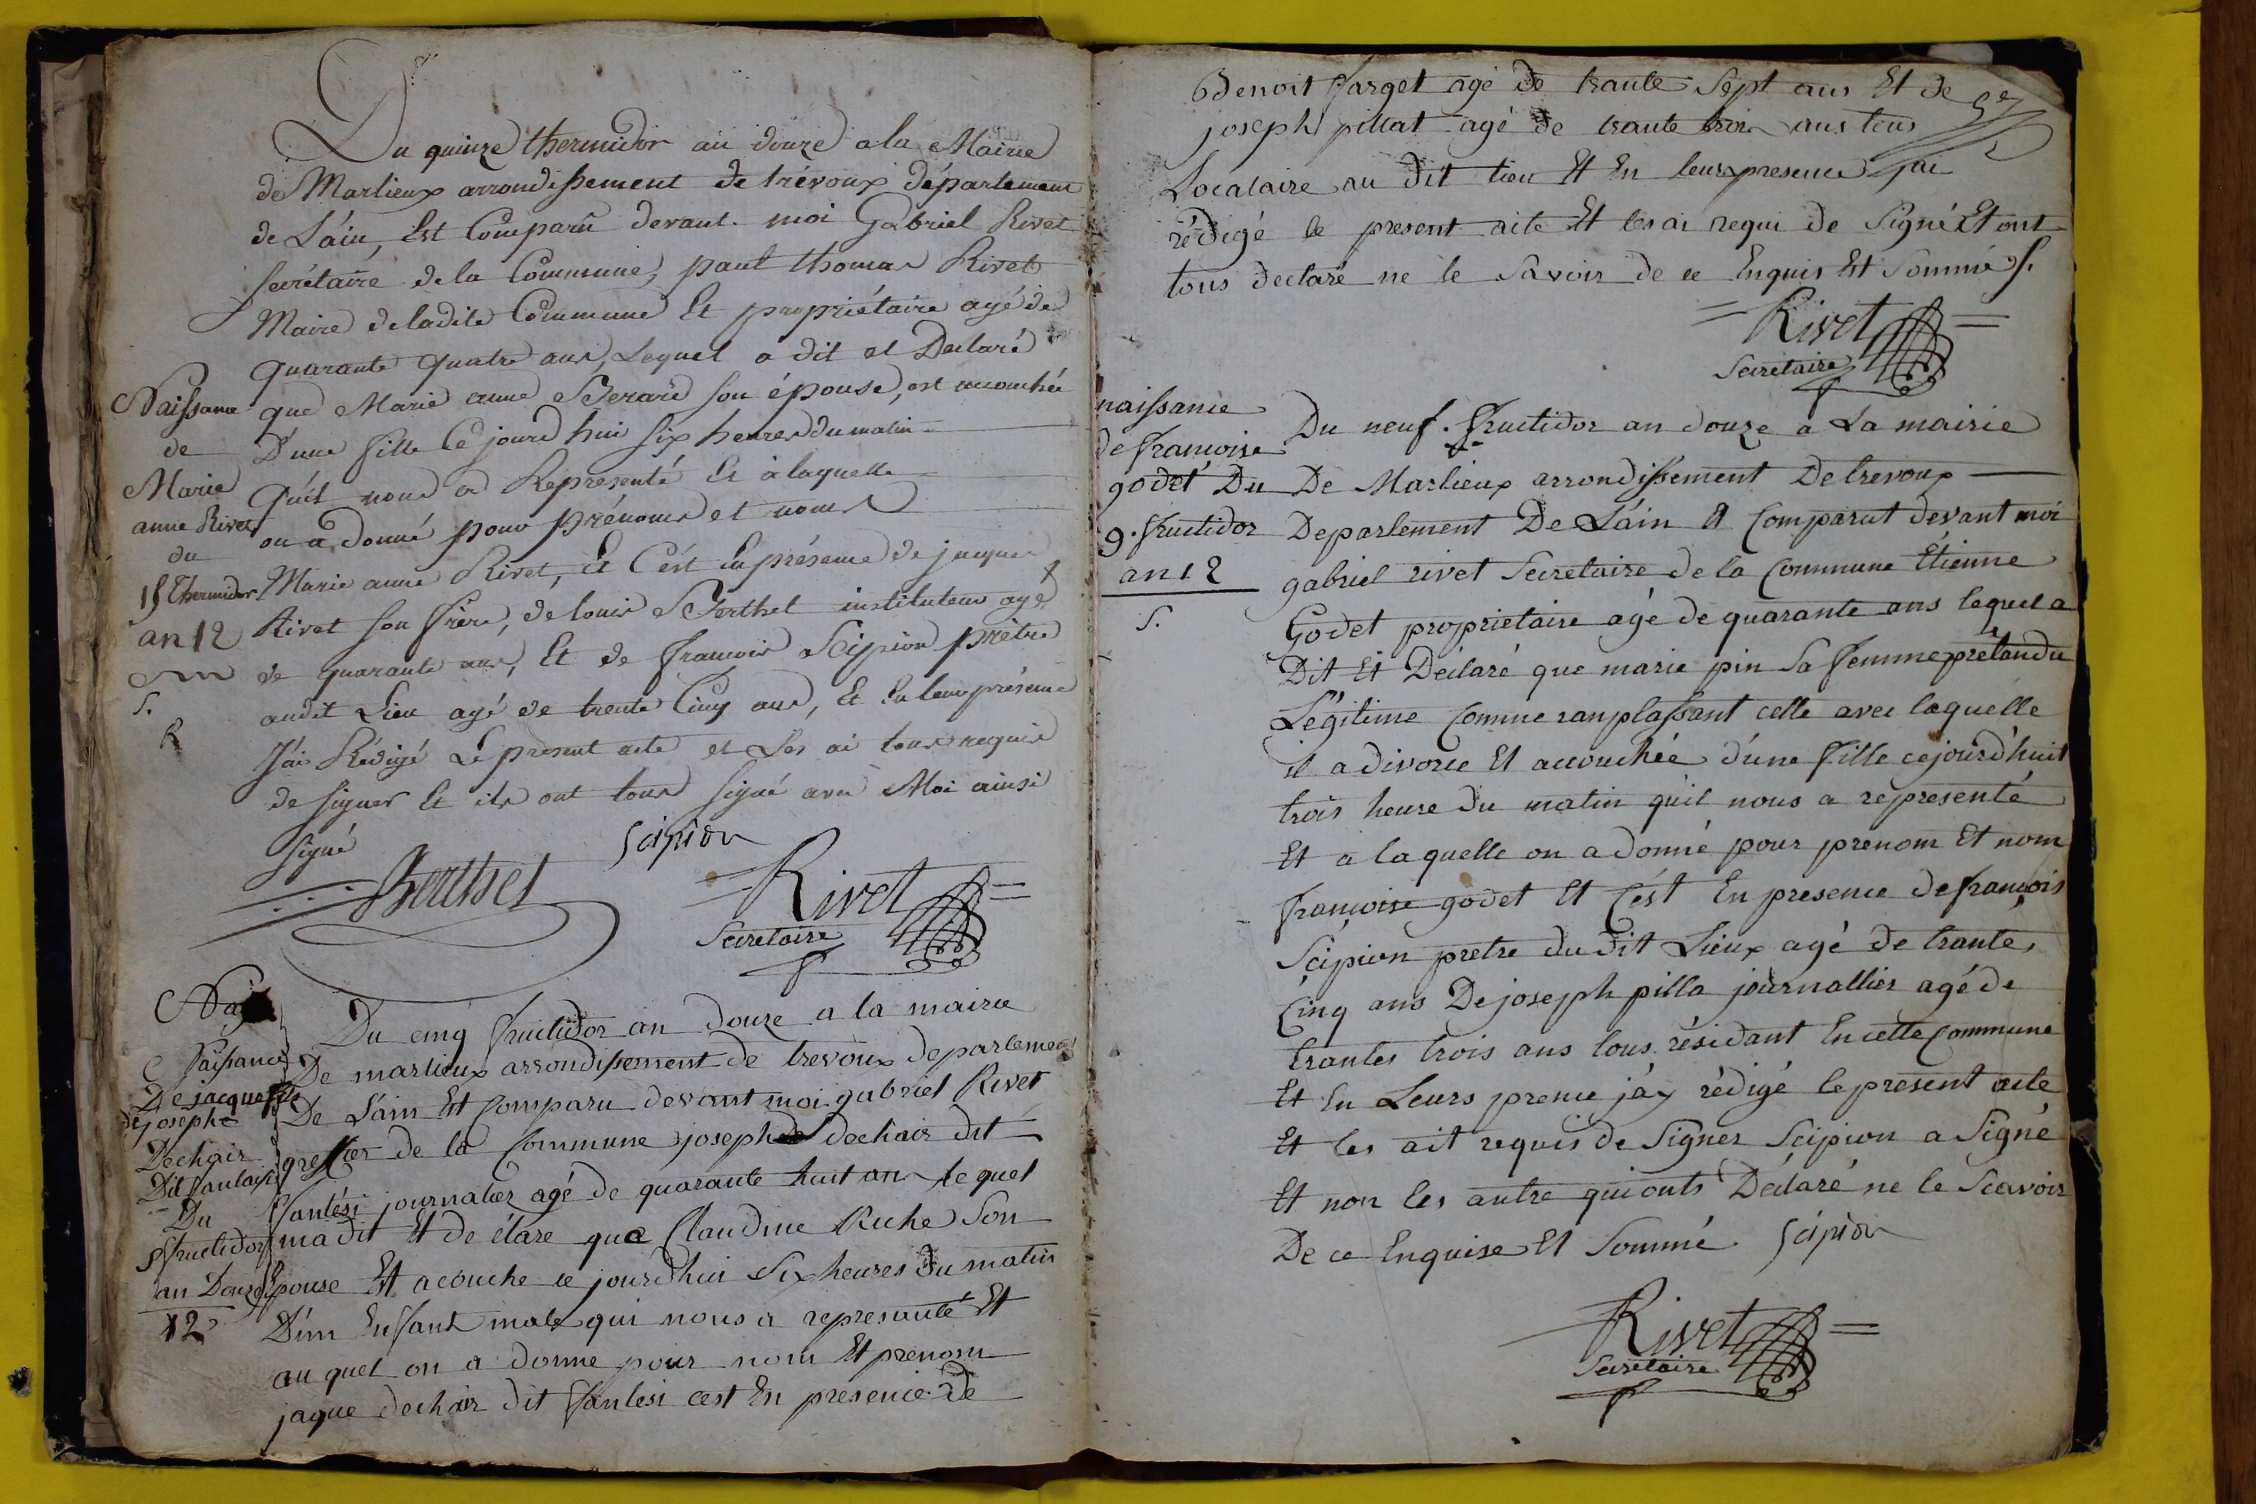 Du quinze thermidor an douze a la Mairie
de Marlieux arrondissement de trévoux département
de L'áin, Est Comparu devant moi Gabriel Rivet
secrétaire de la Commune, paul thomas Rivet
Maire de ladite Commune Et propriétaire agé de
quarante quatre ans, Lequel a dit et Declaré
que Marie anne Berard son épouse, est accouchée
D'une fille Ce jourd'hui six heures du matin
Qu'il nous a Représenté Et à laquelle
on a donné pour prénoms et noms
Marie anne Rivet, et C'ést en présence de jacques
Rivet son frère, de louis Berthet instituteur agé
de quarante ans, Et de francois Scipion prêtre
audit Lieu agé de trente Cinq ans, Et En leur présence
J'ai Rédigé Le présent acte et Les ai tous requis
de signer Et ils ont tous signé avec Moi ainsi
signé
Scipion
Berthet
Rivet
Secretaire
Naissance
de
Marie
anne Rivet
du
15 Thermidor
an 12
S.
R
Nai
Naissance
De jacque
de joseph
Dechair
Dit fantaisi
Du
5 fructidor
an Douze
12
Du cinq fructidor an douze a la mairie
De marlieux arrondissement de trevoux departement
De L'ain Est Comparu devant moi gabriel Rivet
greffier de la Commune joseph dechair dit
fantési journalier agé de quarante huit ans le quel
ma dit Et de claré que Claudine Riche son
Epouse Est acouche ce jourd'hui Six heures du matin
D'un Enfant male qui nous a represanté Et
au quel on a donne pour nom Et prenom
jaque dechair dit fantesi cest En presence de
57
Benoit farget agé de trante Sept ans Et de
joseph pillat agé de trante trois ans tous
Localaire au dit lieu Et En leurs presence jai
rédigé le present acte Et les ai requi de Signé Et ont
tous declaré ne le Savoir de ce Enquis Est Sommé S.
Rivet
Secretaire
naissance
de francoise
godet Du
9. fructidor
an 12
S.
Du neuf. fructidor an douze a La mairie
De Marlieux arrondissement De trevoux
Departement De L'áin A Comparut devant moi
gabriel rivet Secretaire de la Commune Étienne
Godet proprietaire agé de quarante ans lequel a
Dit Et Déclaré que marie pin Sa femme prétandu
Légitime Comme ranplassant celle avec laquelle
il a divorce Et accouchée d'une fille cejourd'huit
trois heure du matin qu'il nous a representé
Et a la quelle on a donné pour prenom Et nom
francoise godet Et C'ést En presence de françois
Scipion pretre du dit Lieux agé de trante
Cinq ans De joseph pilla journallier agé de
trantes trois ans tous résidant En cette Commune
Et En Leurs prence j'áy rédigé le present acte
Et les ait requis de Signer Scipion a Signé
Et non les autre qui onts Déclaré ne le Scavoir
De ce Enquise Et Sommé Scipion
Rivet
Secretaire